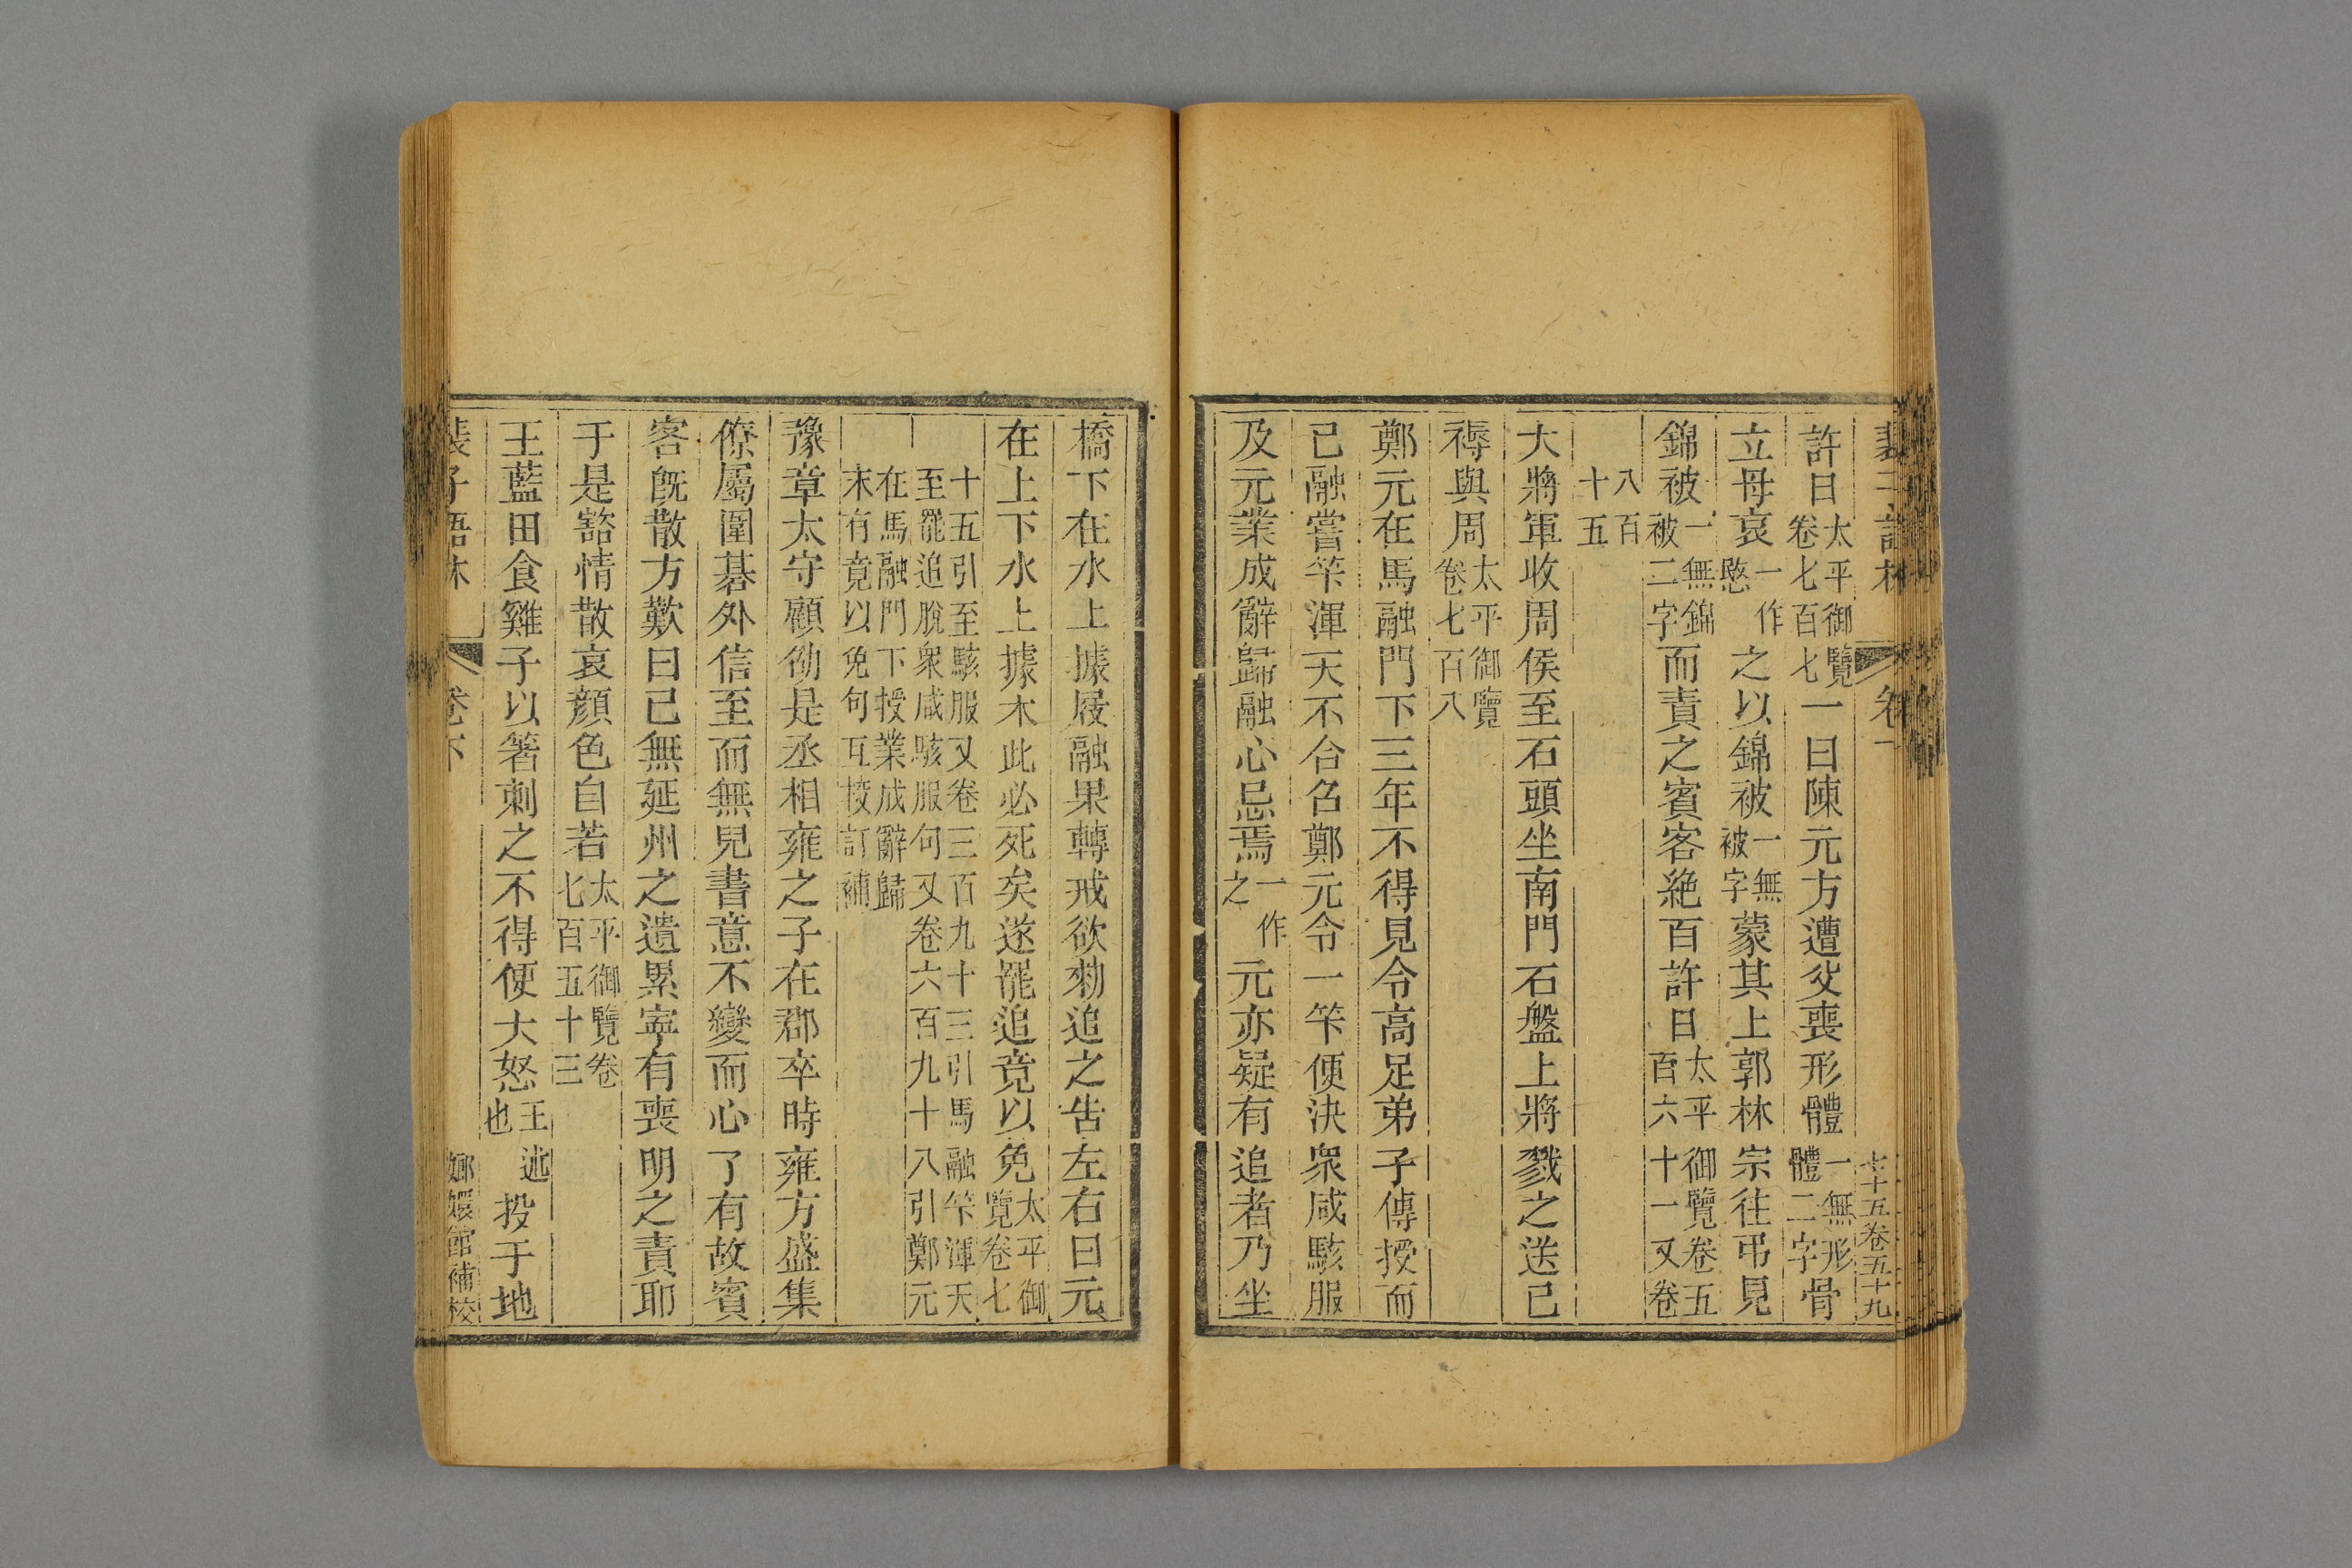 裴子語林 卷下 七十五卷五十九
許日太平御覽卷七百七一曰陳元方遭父喪形體一無形體二字骨
立母哀一作愍之以錦被一無被字蒙其上郭林宗往弔見
錦被一無錦被二字而責之賓客絶百許日太平御覽卷五百六十一又卷
八百十五
大將軍收周侯至石頭坐南門石盤上將戮之送已
褥與周太平御覽卷七百八
鄭元在馬融門下三年不得見令高足弟子傳授而
已融嘗筭渾天不合召鄭元令一筭便決衆咸駭服
及元業成辭歸融心忌焉一作之元亦疑有追者乃坐
橋下在水上據屐融果轉戒欲勑追之告左右曰元
在土下水上據木此必死矣遂罷追竟以免太平御覽卷七
十五引至駭服又卷三百九十三引馬融筭渾天至罷追脫衆咸駭服句又卷六百九十八引鄭元
在馬融門下授業成辭歸末有竟以免句互校訂補
豫章太守顧劭是丞相雍之子在郡卒時雍方盛集
僚屬圍碁外信至而無兒書意不變而心了有故賓
客旣散方歎曰已無延州之遺累寧有喪明之責耶
于是豁情散哀顏色自若太平御覽卷七百五十三
王藍田食雞子以箸刺之不得便大怒王述也投于地
裴子語林 卷下 嫏嬛館補校